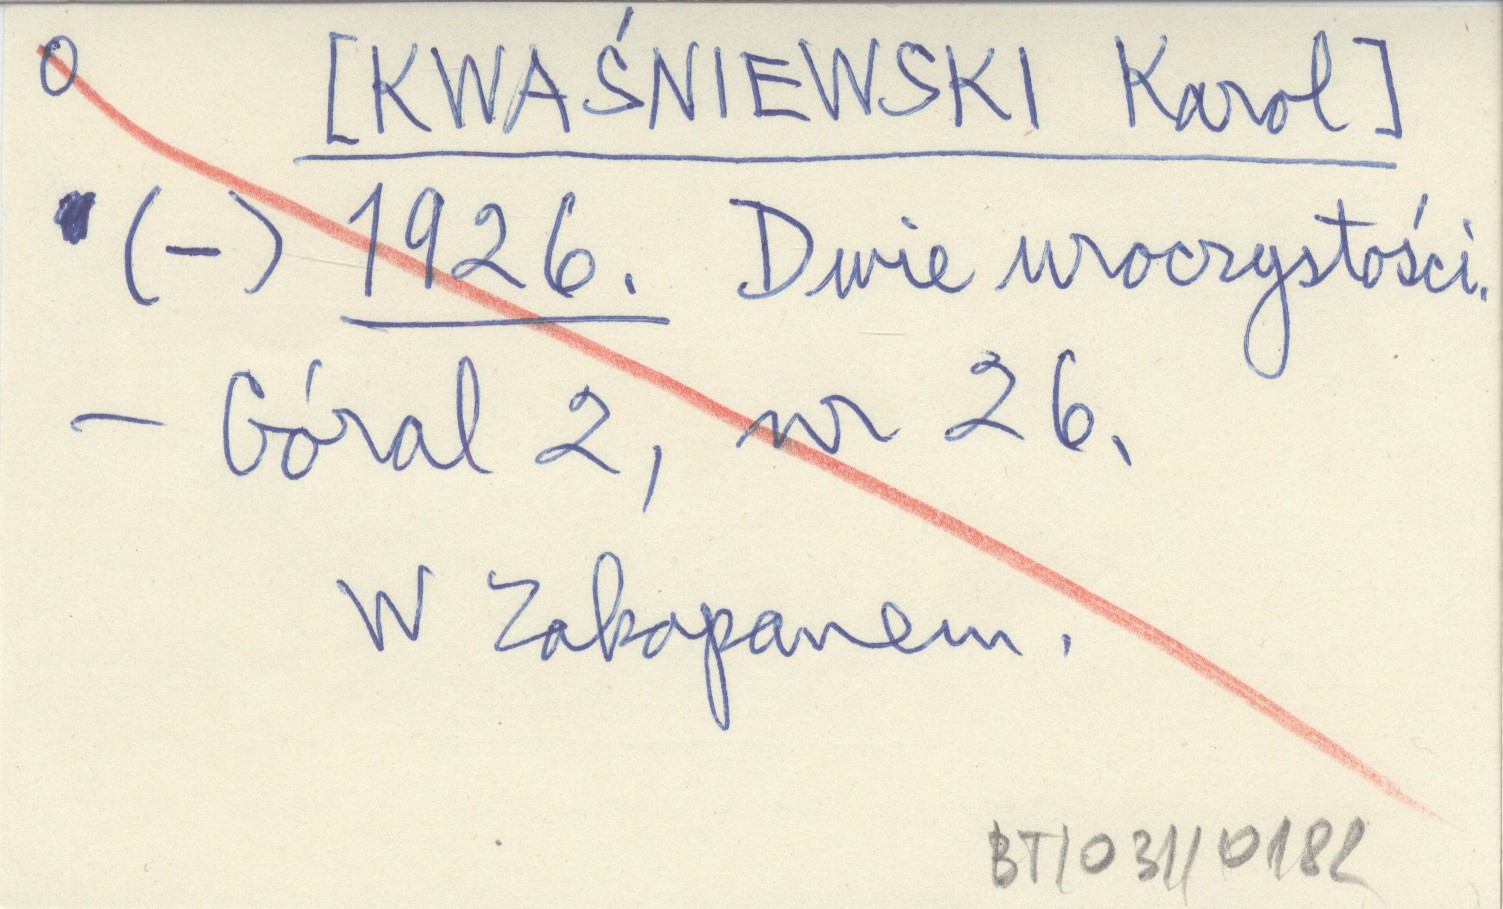 0 [KWAŚNIEWSKI Karol]
(-) 1926. Dwie uroczystości.
- Góral 2, nr 26.
W Zakopanem.
BT/031/0182